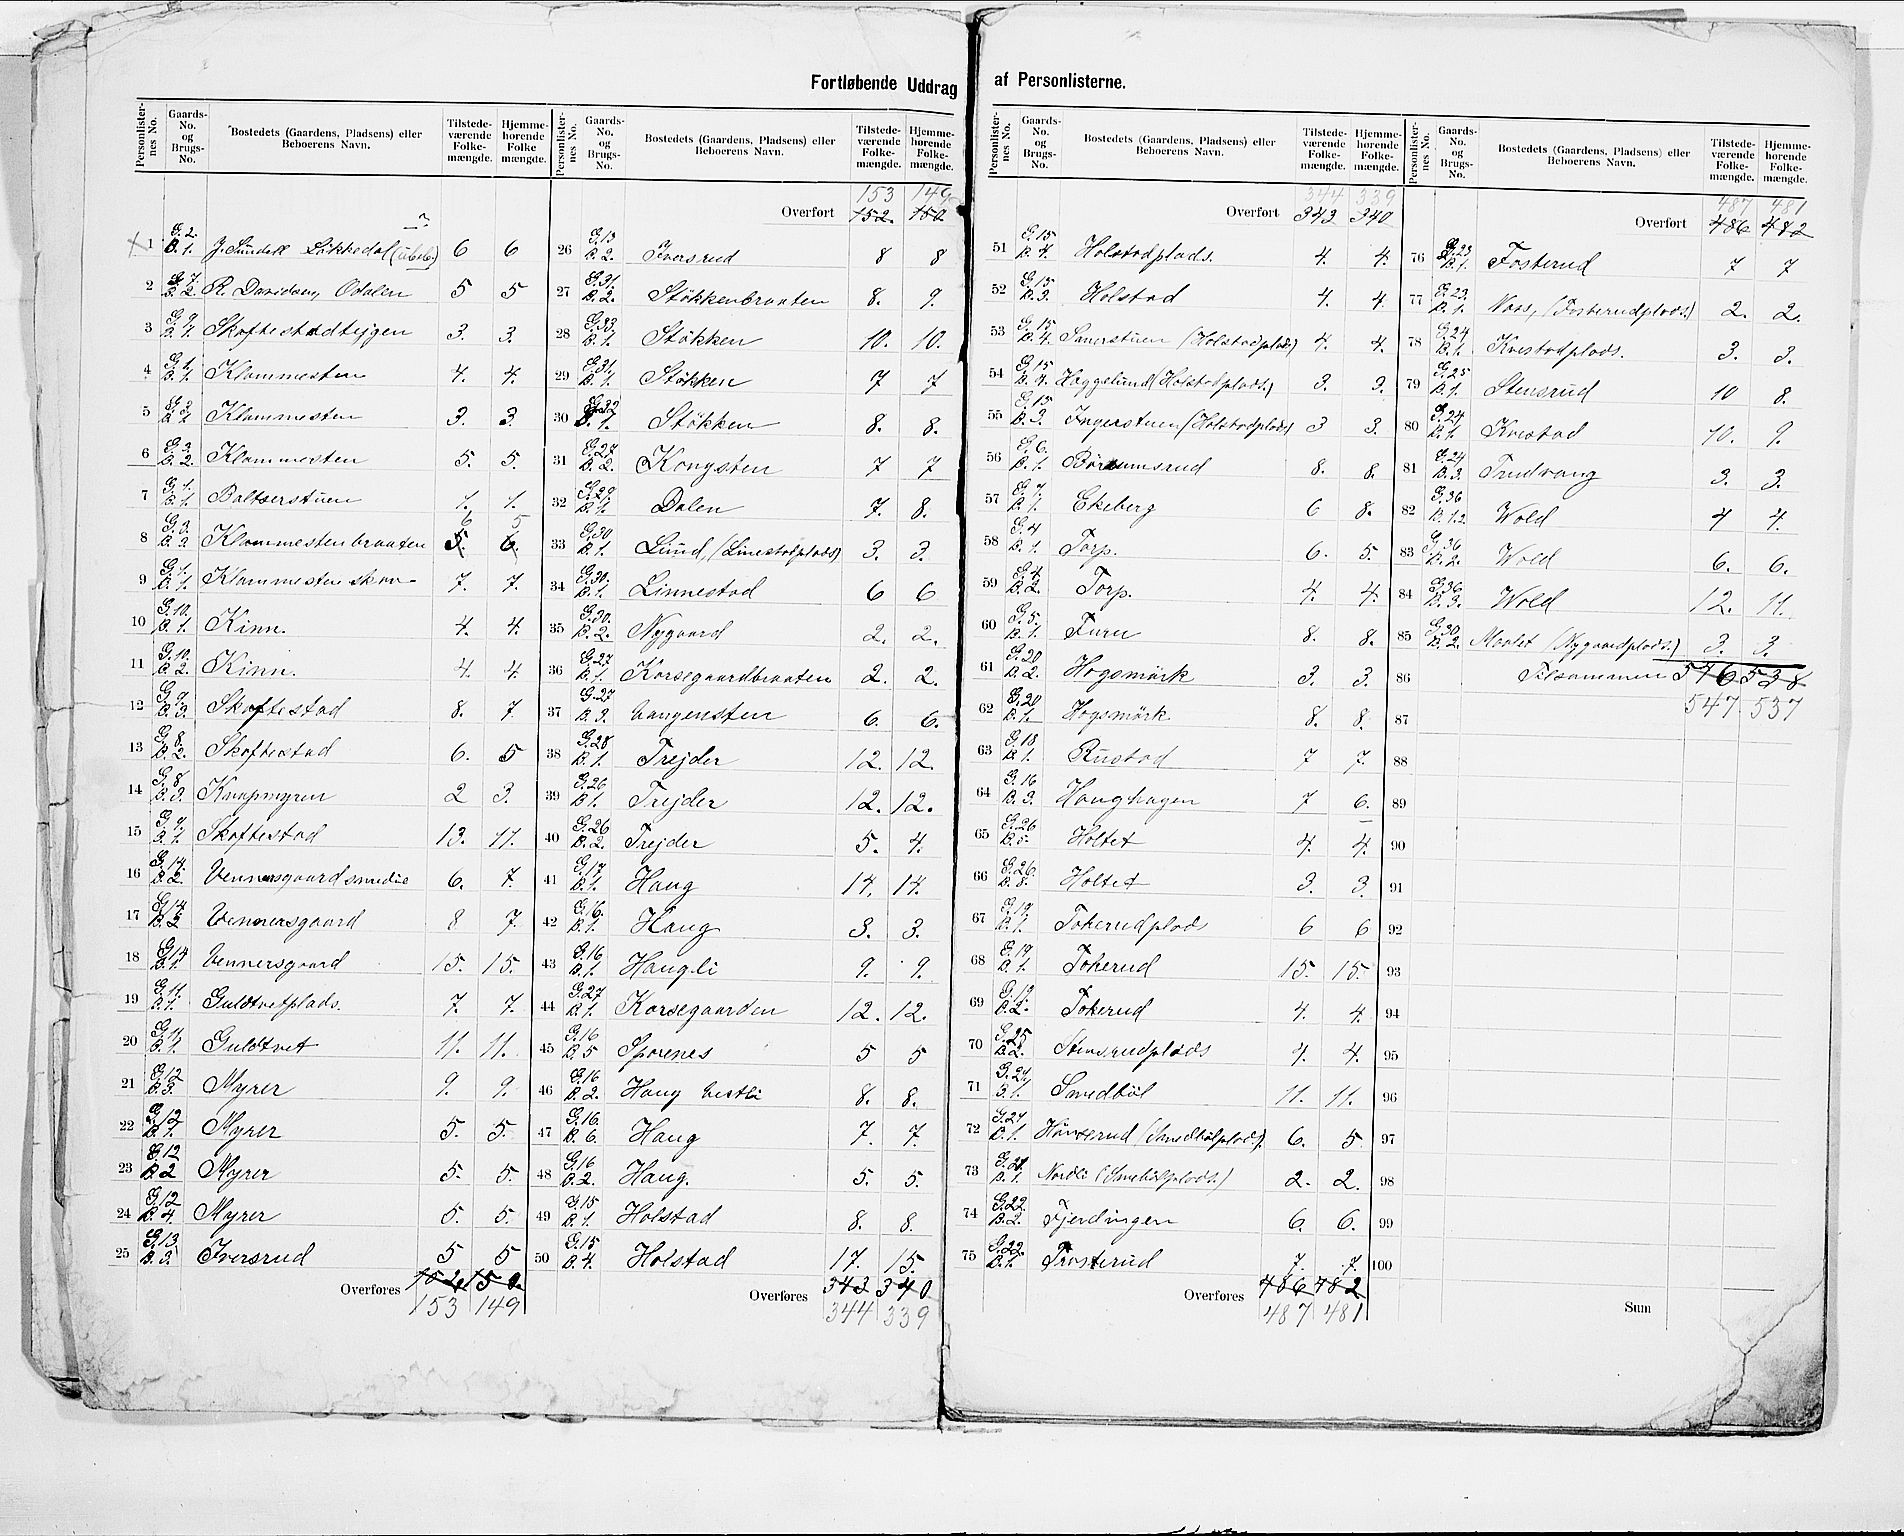 Fortløbende Uddrag af Personlisterne.
Personlister-nes No. Gaards-No. og Brugs-No. Bostedets (Gaardens, Pladsens) eller Beboerens Navn. Tilstede-værende Folke-mængde. Hjemme-hørende Folke mængde.
1 G.2. B.1. J. Sundek Lökkedal (ubeb.) 6 6
2 G.7. B.2. R. Davidsen, Odalen 5 5
3 G.9. B.4. Skoftestadteigen 3. 3.
4 G.1. B.1. Klommesten 4. 4.
5 G.3. B.1. Klommesten 3. 3.
6 G.3. B.2. Klommesten 5. 5.
7 G.1. B.1. Baltserstuen 1. 1.
8 G.3. B.3. Klommestenbraaten 5. 6. 6 5
9 G.1. B.1. Klommesteneskov 7. 7.
10 G.10. B.1. Kinn. 4. 4.
11 G.10. B.2. Kinn. 4 4
12 G.9. B.3. Skoftestad 8. 7
13 G.8. B.2. Skoftestad 6. 5
14 G.8 B.3. Knapmyren 2 3.
15 G.9. B.1. Skoftestad 13. 11.
16 G.14. B.2. Vennersgaardsmedie 6. 7.
17 G.14 B.2 Vennersgaard 8 7.
18 G.14 B.1. Vennersgaard 15. 15.
19 G.11. B.1. Guldtvetplads. 7. 7.
20 G.11 B.1. Guldtvet 11. 11.
21 G.12 B.3. Myrer 9. 9.
22 G.12 B.1. Myrer 5. 5.
23 G.12 B.2 Myrer 5. 5.
24 G.12 B.4. Myrer 5. 5.
25 G.13. B.3. Iversrud 5 5
Overføres 152 150.
153 149
Personlister-nes No. Gaards-No. og Brugs-No. Bostedets (Gaardens, Pladsens) eller Beboerens Navn. Tilstede-værende Folke-mængde. Hjemme-hørende Folke-mængde.
153 149
Overført 152. 150.
26 G.13 B.2. Iversrud 8 8
27 G.31. B.2. Stökkenbraaten 8. 9.
28 G.33. B.1. Stökken 10. 10.
29 G.31. B.1. Stökken 7 7
30 G.32 B.1. Stökken 8. 8.
31 G.27 B.2. Kongsten 7 7
32 G.29. B.1. Dalen 7. 8.
33 G.30 B.1. Lund, (Linestadplads) 3. 3.
34 G.30. B.1. Linnestad 6 6
35 G.30. B.2. Nygaard 2. 2.
36 G.27 B.1. Korsegaardbraaten 2. 2.
37 G.27 B.3. Vangensten 6. 6.
38 G.28. B.1. Trejder 12. 12.
39 G.26 B.1. Trejder 12. 12.
40 G.26 B.2. Trejder 5. 4.
41 G.17. B.1. Haug 14. 14.
42 G.16. B.1. Haug 3. 3.
43 G.16 B.1. Haugli 9. 9.
44 G.27 B.1. Korsegaarden 12. 12.
45 G.16 B.5 Sporenes 5 5
46 G.16 B.2. Haug Vestli 8. 8.
47 G.16. B.6. Haug 7. 7.
48 G.16 B.2. Haug. 5. 5.
49 G.15 B.1. Holstad 8. 8.
50 G.15 B.4. Holstad 17. 15.
Overføres 343 340
344 339
Personlister-nes No. Gaards-No. og Brugs-No. Bostedets (Gaardens, Pladsens) eller Beboerens Navn. Tilstede-værende Folke-mængde. Hjemme-hørende Folke-mængde.
344 339
Overført 343 340
51 G.15 B.4. Holstadplads. 4. 4.
52 G.15 B.3. Holstad 4. 4.
53 G.15 B.4. Smerstuen (Holstadplads.) 4. 4.
54 G.15 B.4. Haggelund (Holstadplads.) 3. 3.
55 G.15. B.3. Ingerstuen (Holstadplads) 3 3.
56 G.6. B.1. Börsumsrud 8. 8.
57 G.7. B.1. Ekeberg 6 8.
58 G.4 B.1. Torp. 6. 5.
59 G.4. B.2. Torp. 4. 4.
60 G.5. B.1. Furu 8. 8.
61 G.20 B.2. Hogsmörk 3. 3.
62 G.20 B.1. Hogsmörk 8. 8.
63 G.18 B.1 Rustad 7 7.
64 G.16 B.3. Haughagen 7 6.
65 G.26 B.5. Holtet 4. 4.
66 G.26. B.8. Holtet 3. 3.
67 G.19. B.1. Tokerudplads 6 6
68 G.19. B.1. Tokerud 15. 15.
69 G.19. B.2. Tokerud 4. 4.
70 G.25 B.2. Stensrudplads 4. 4.
71 G.21, B.1. Smedböl 11. 11.
72 G.21 B.1. Hansrud (Smedbölplads). 6. 5
73 G.21. B.1. Nordli (Smedbölplads.) 2. 2.
74 G.22. B.2. Fjerdingen 6. 6.
75 G.22. B.1. Frosterud 7. 7.
Overføres 486 482
487 481
Personlister-nes No. Gaards-No. og Brugs-No. Bostedets (Gaardens, Pladsens) eller Beboerens Navn. Tilstede-værende Folke-mængde. Hjemme-hørende Folke-mængde.
487 481
Overført 486 482
76 G.23 B.1. Fosterud 7 7
77 G.23. B.1. Naas, (Fosterudplads.) 2. 2.
78 G.24 B.1. Kvestadplads. 3. 3.
79 G.25 B.1. Stensrud 10 8.
80 G.24 B.1. Kvestad 10. 9.
81 G.24 B.3. Trudvang 3. 3.
82 G.36 B.1.2. Wold 4 4.
83 G.36 B.2. Wold 6. 6.
84 G.36 B.3. Wold 12. 11.
85 G.30 B.2. Maalet (Nygaardplads.) 3. 3.
86 Tilsammen 546 538
87 547. 537
88
89
90
91
92
93
94
95
96
97
98
99
100
Sum